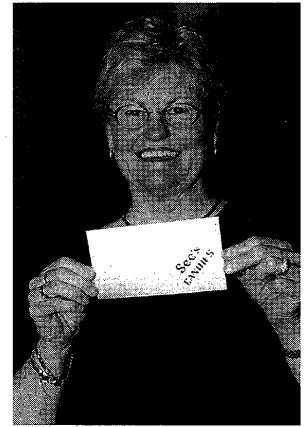 See's
CANDIES